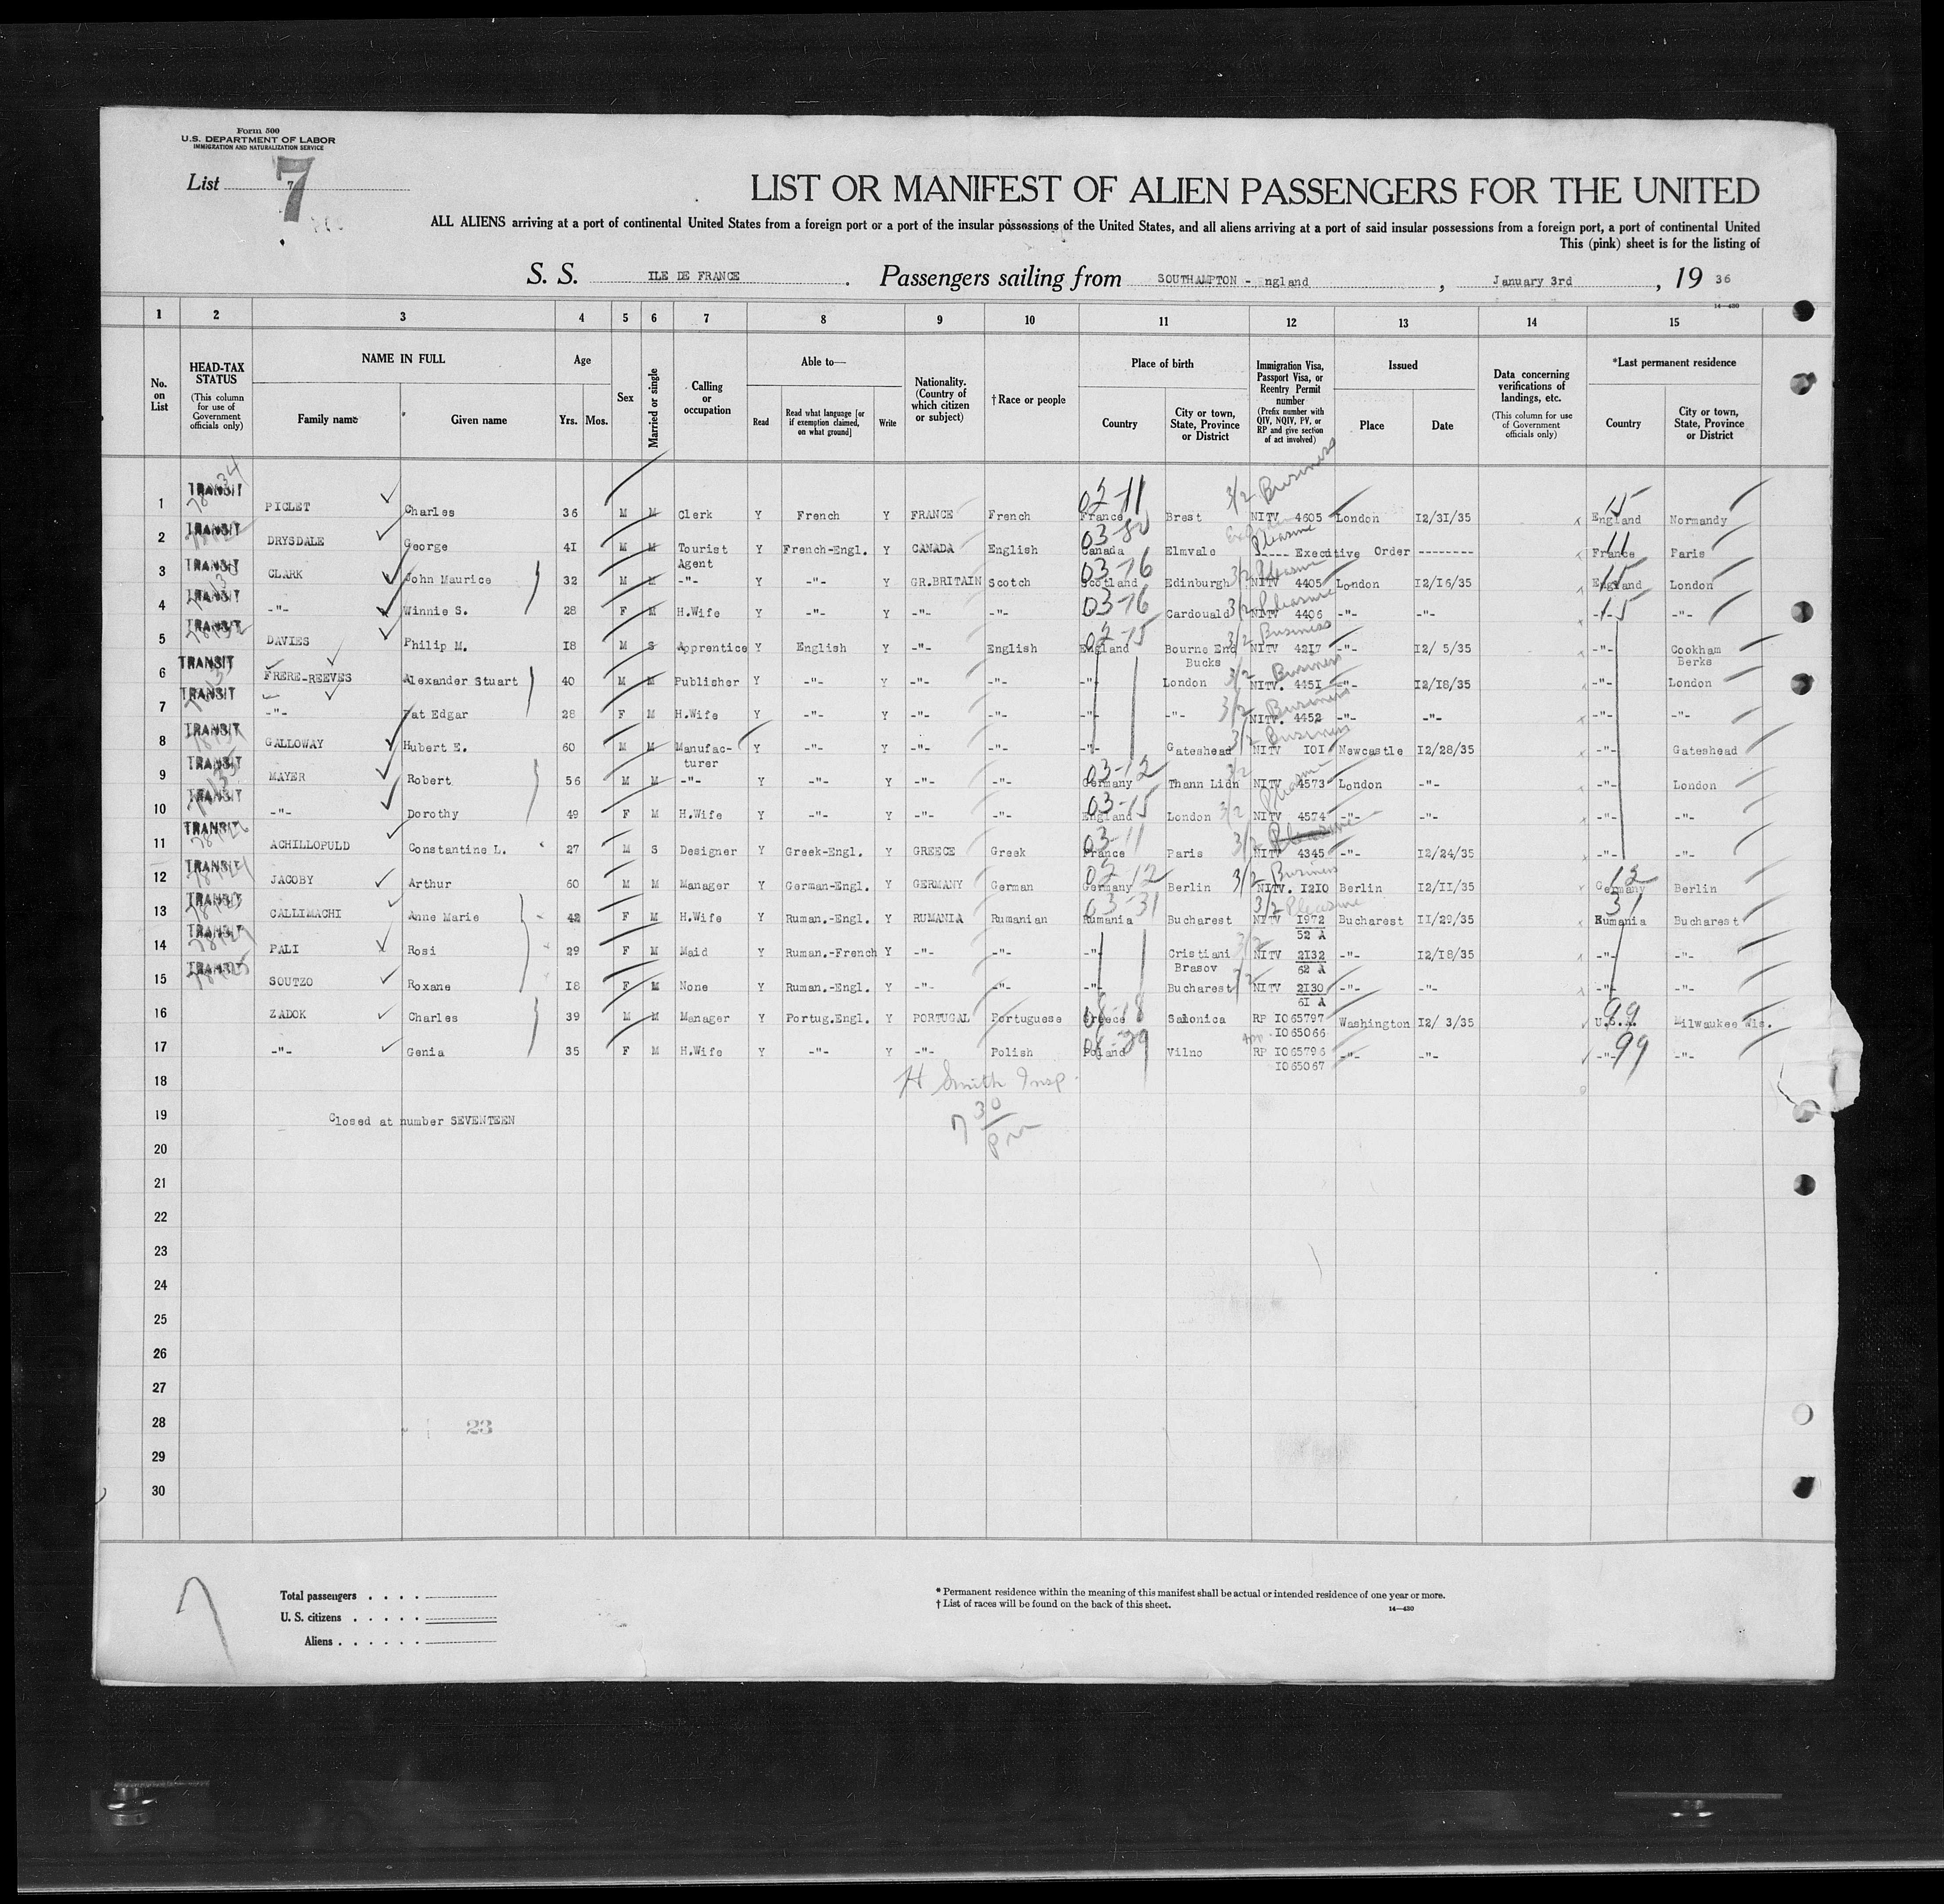 Form 500
U.S. DEPARTMENT OF LABOR
IMMIGRATION AND NATURALIZATION SERVICE
List 7
7
LIST OR MANIFEST OF ALIEN PASSENGERS FOR THE UNITED
ALL ALIENS arriving at a port of continental United States from a foreign port or a port of the insular possessions of the United States, and all aliens arriving at a port of said insular possessions from a foreign port, a port of continental United
This (pink) sheet is for the listing of
S. S. ILE DE FRANCE . Passengers sailing from SOUTHAMPTON - England , January 3rd , 19 36
14—430
1 2 3 4 5 6 7 8 9 10 11 12 13 14 15
No. on List
HEAD-TAX STATUS (This column for use of Government officials only)
NAME IN FULL
Family name
Given name
Age
Yrs. Mos.
Sex
Married or single
Calling or occupation
Able to—
Read
Read what language [or if exemption claimed, on what ground]
Write
Nationality. (Country of which citizen or subject)
†Race or people
Place of birth
Country
City or town, State, Province or District
Immigration Visa, Passport Visa, or Reentry Permit number (Prefix number with QIV, NQIV, PV, or RP and give section of act involved)
Issued
Place
Date
Data concerning verifications of landings, etc. (This column for use of Government officials only)
*Last permanent residence
Country
City or town, State, Province or District
1 TRANSIT PICLET Charles 36 M M Clerk Y French Y FRANCE French 02-11 France Brest 3/2 Business NITV 4605 London 12/31/35 15 England Normandy
2 TRANSIT DRYSDALE George 41 M M Tourist Agent Y French-Engl. Y CANADA English 03-80 Canada Elmvale Pleasure ----- Executive Order -------- 11 France Paris
3 TRANSIT CLARK John Maurice 32 M M -"- Y -"- Y GR.BRITAIN Scotch 03-16 Scotland Edinburgh 3/2 Pleasure NITV 4405 London 12/16/35 15 England London
4 TRANSIT -"- Winnie S. 28 F M H.Wife Y -"- Y -"- -"- 03-16 Cardouald 3/2 Pleasure NITV 4406 -"- -"- 15 -"- -"-
5 TRANSIT DAVIES Philip M. 18 M S Apprentice Y English Y -"- English 02-15 England Bourne End Bucks 3/2 Business NITV 4217 -"- 12/ 5/35 -"- Cookham Berks
6 TRANSIT FRERE-REEVES Alexander Stuart 40 M M Publisher Y -"- Y -"- -"- -"- London 3/2 Business NITV. 4451 -"- 12/18/35 -"- London
7 TRANSIT -"- Pat Edgar 28 F M H.Wife Y -"- Y -"- -"- -"- -"- 3/2 Business NITV. 4452 -"- -"- -"- -"-
8 TRANSIT GALLOWAY Hubert E. 60 M M Manufacturer Y -"- Y -"- -"- -"- Gateshead 3/2 Business NITV 101 Newcastle 12/28/35 -"- Gateshead
9 TRANSIT MAYER Robert 56 M M -"- Y -"- Y -"- -"- 03-12 Germany Thann Lidn 3/2 NITV 4573 London -"- -"- London
10 TRANSIT -"- Dorothy 49 F M H.Wife Y -"- Y -"- -"- 03-15 England London 3/2 Pleasure NITV 4574 -"- -"- -"- -"-
11 TRANSIT ACHILLOPULD Constantine L. 27 M S Designer Y Greek-Engl. Y GREECE Greek 03-11 France Paris 3/2 Pleasure NITV 4345 -"- 12/24/35 -"- -"-
12 TRANSIT JACOBY Arthur 60 M M Manager Y German-Engl. Y GERMANY German 02-12 Germany Berlin 3/2 Business NITV. 1210 Berlin 12/11/35 12 Germany Berlin
13 TRANSIT CALLIMACHI Anne Marie 42 F M H.Wife Y Ruman.-Engl. Y RUMANIA Rumanian 03-31 Rumania Bucharest 3/2 Pleasure NITV 1972 52 A Bucharest 11/29/35 31 Rumania Bucharest
14 TRANSIT PALI Rosi 29 F M Maid Y Ruman.-French Y -"- -"- -"- Cristiani Brasov 3/2 NITV 2132 62 A -"- 12/18/35 -"- -"-
15 TRANSIT SOUTZO Roxane 18 F M None Y Ruman.-Engl. Y -"- -"- -"- Bucharest 3/2 NITV 2130 61 A -"- -"- -"- -"-
16 ZADOK Charles 39 M M Manager Y Portug.Engl. Y PORTUGAL Portuguese Greece Salonica RP 1065797 1065066 Washington 12/ 3/35 99 U.S.A. Milwaukee Wis.
17 -"- Genia 35 F M H.Wife Y -"- Y -"- Polish Poland Vilno RP 1065796 1065067 -"- -"- 99 -"- -"-
18 H Smith Insp.
19 Closed at number SEVENTEEN 7 30 pm
20
21
22
23
24
25
26
27
28 23
29
30
7
Total passengers . . . .
U. S. citizens . . . . .
Aliens . . . . . .
* Permanent residence within the meaning of this manifest shall be actual or intended residence of one year or more.
† List of races will be found on the back of this sheet.
14—430